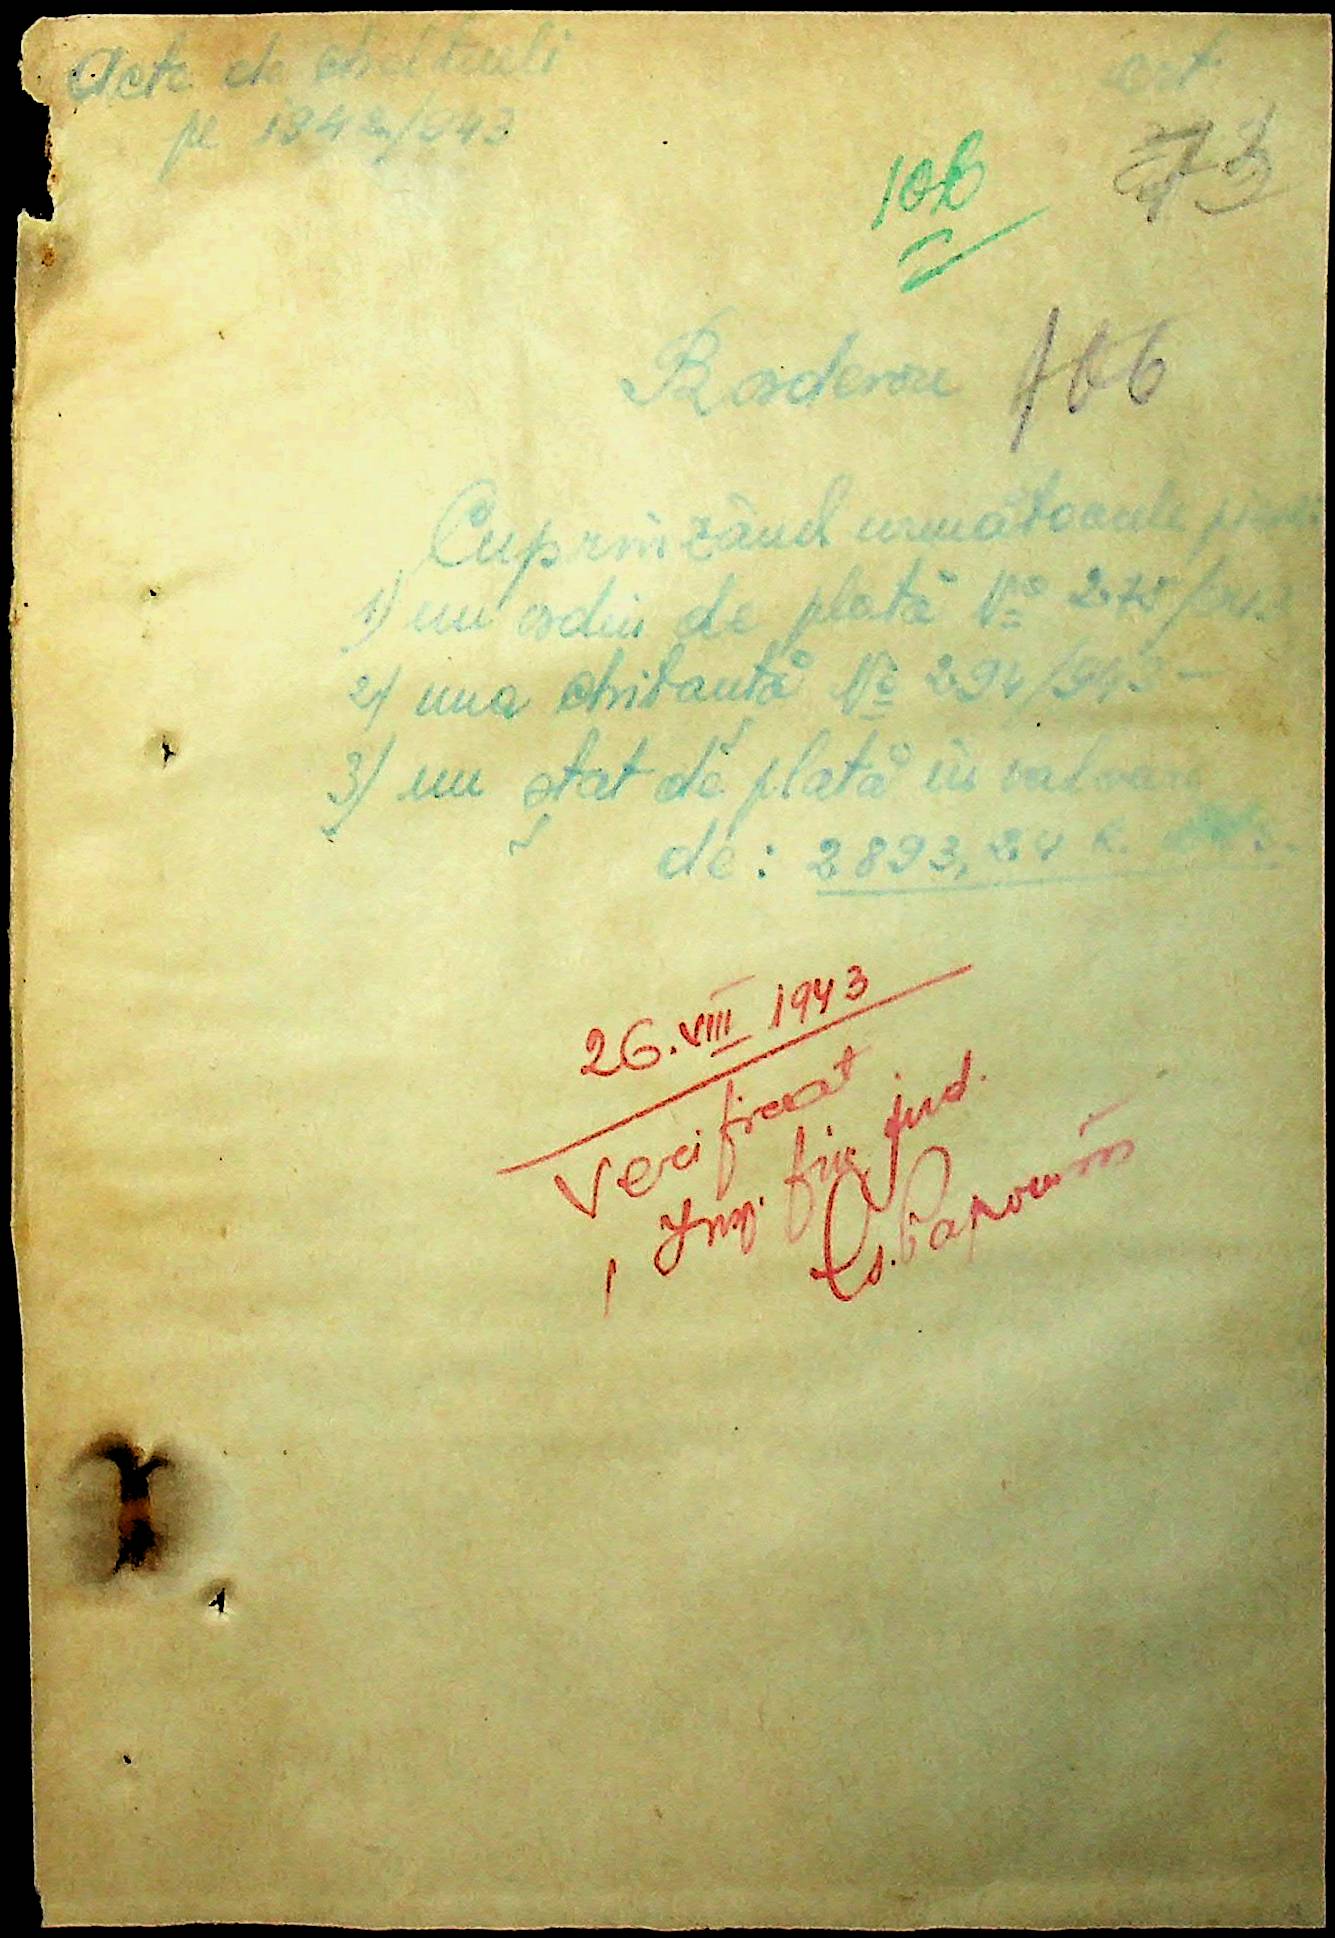 Acte de cheltueli
pe 1942/943
art.
73
106
Borderou 106
Cuprinzând următoarele piese
1) un ordin de plată No 275/943
2) una chitanță No 294/943 —
3) un stat de plată în valoare
de: 2893,24
26.VIII 1943
Verificat
Insp. fin jud.